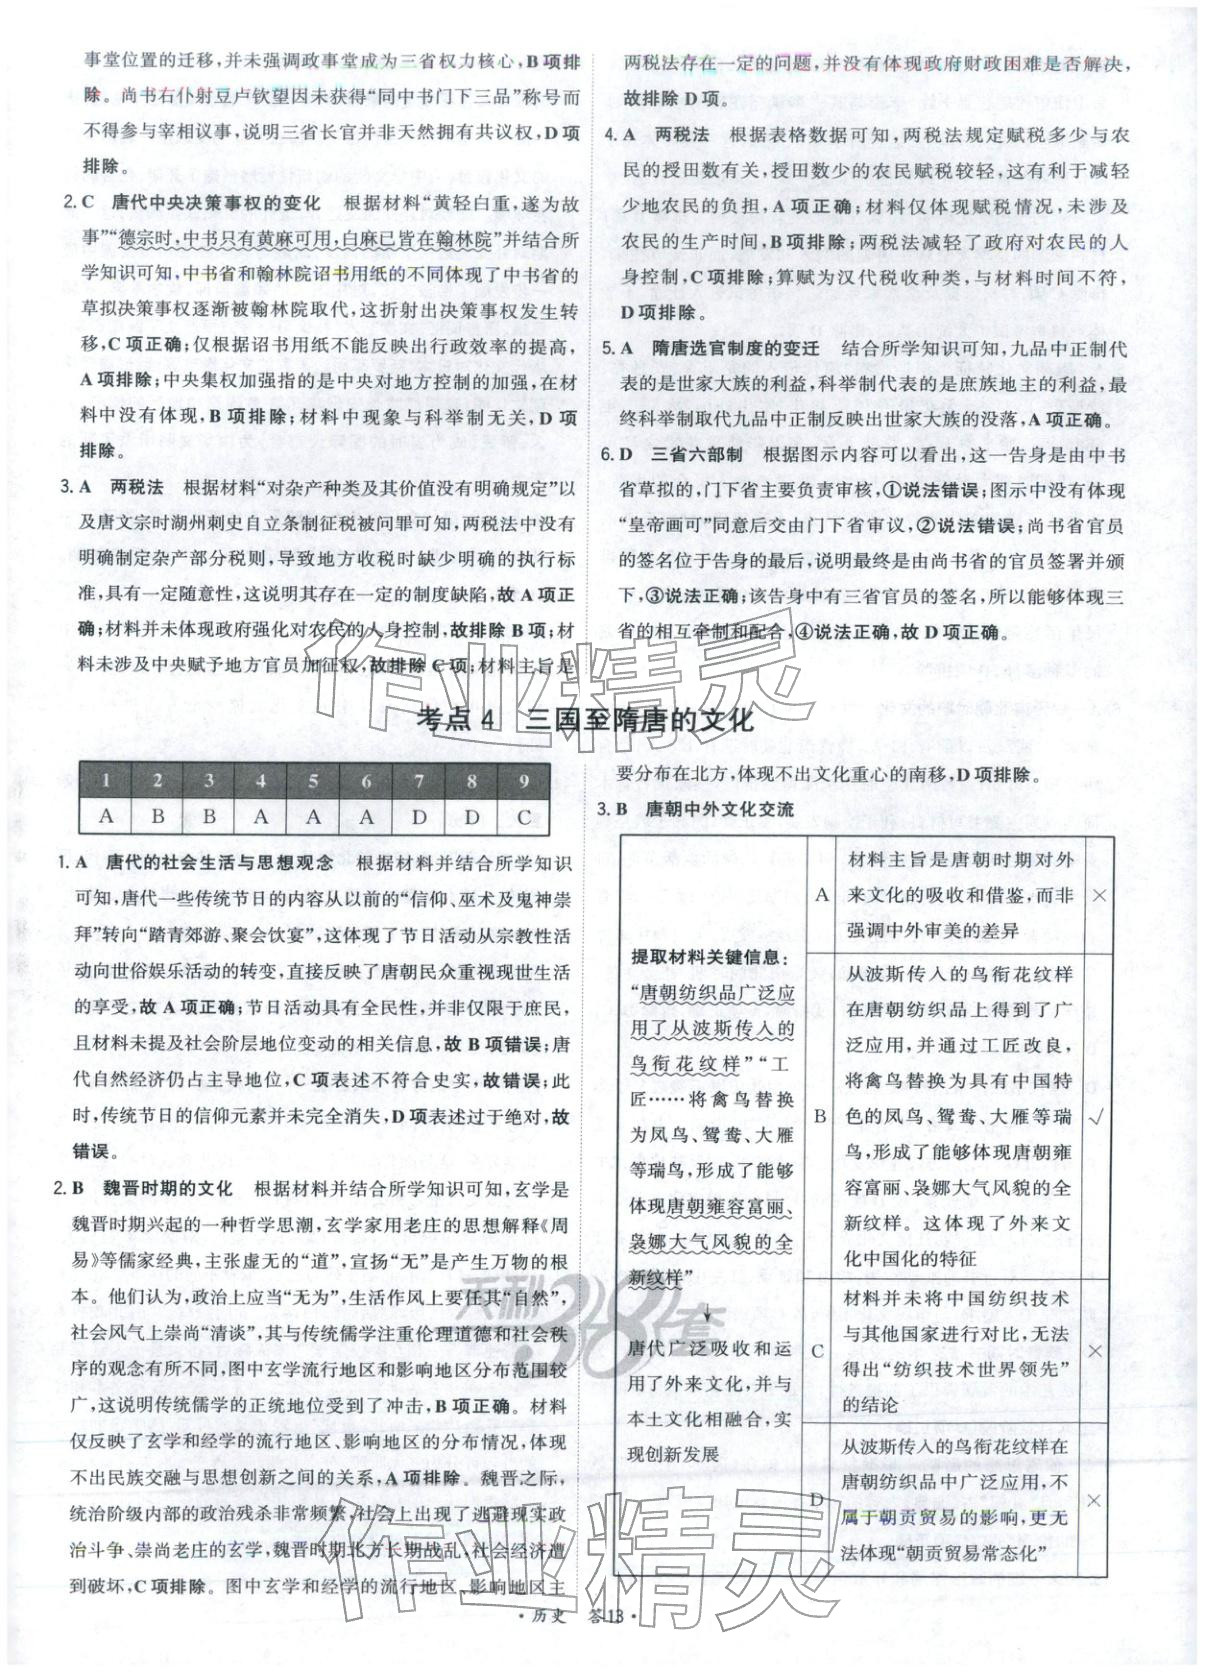 事堂位置的迁移,并未强调政事堂成为三省权力核心,B项排
除。尚书右仆射豆卢钦望因未获得“同中书门下三品”称号而
不得参与宰相议事,说明三省长官并非天然拥有共议权,D项
排除。
2. C 唐代中央决策事权的变化 根据材料“黄轻白重,遂为故
事”“德宗时,中书只有黄麻可用,白麻已皆在翰林院”并结合所
学知识可知,中书省和翰林院诏书用纸的不同体现了中书省的
草拟决策事权逐渐被翰林院取代,这折射出决策事权发生转
移,C项正确;仅根据诏书用纸不能反映出行政效率的提高,
A项排除;中央集权加强指的是中央对地方控制的加强,在材
料中没有体现,B项排除;材料中现象与科举制无关,D项
排除。
3. A 两税法 根据材料“对杂产种类及其价值没有明确规定”以
及唐文宗时湖州刺史自立条制征税被问罪可知,两税法中没有
明确制定杂产部分税则,导致地方收税时缺少明确的执行标
准,具有一定随意性,这说明其存在一定的制度缺陷,故A项正
确;材料并未体现政府强化对农民的人身控制,故排除B项;材
料未涉及中央赋予地方官员加征权,故排除C项;材料主旨是
两税法存在一定的问题,并没有体现政府财政困难是否解决,
故排除D项。
4. A 两税法 根据表格数据可知,两税法规定赋税多少与农
民的授田数有关,授田数少的农民赋税较轻,这有利于减轻
少地农民的负担,A项正确;材料仅体现赋税情况,未涉及
农民的生产时间,B项排除;两税法减轻了政府对农民的人
身控制,C项排除;算赋为汉代税收种类,与材料时间不符,
D项排除。
5. A 隋唐选官制度的变迁 结合所学知识可知,九品中正制代
表的是世家大族的利益,科举制代表的是庶族地主的利益,最
终科举制取代九品中正制反映出世家大族的没落,A项正确。
6. D 三省六部制 根据图示内容可以看出,这一告身是由中书
省草拟的,门下省主要负责审核,①说法错误;图示中没有体现
“皇帝画可”同意后交由门下省审议,②说法错误;尚书省官员
的签名位于告身的最后,说明最终是由尚书省的官员签署并颁
下,③说法正确;该告身中有三省官员的签名,所以能够体现三
省的相互牵制和配合,④说法正确,故D项正确。
考点4 三国至隋唐的文化
1 2 3 4 5 6 7 8 9
A B B A A A D D C
1. A 唐代的社会生活与思想观念 根据材料并结合所学知识
可知,唐代一些传统节日的内容从以前的“信仰、巫术及鬼神崇
拜”转向“踏青郊游、聚会饮宴”,这体现了节日活动从宗教性活
动向世俗娱乐活动的转变,直接反映了唐朝民众重视现世生活
的享受,故A项正确;节日活动具有全民性,并非仅限于庶民,
且材料未提及社会阶层地位变动的相关信息,故B项错误;唐
代自然经济仍占主导地位,C项表述不符合史实,故错误;此
时,传统节日的信仰元素并未完全消失,D项表述过于绝对,故
错误。
2. B 魏晋时期的文化 根据材料并结合所学知识可知,玄学是
魏晋时期兴起的一种哲学思潮,玄学家用老庄的思想解释《周
易》等儒家经典,主张虚无的“道”,宣扬“无”是产生万物的根
本。他们认为,政治上应当“无为”,生活作风上要任其“自然”,
社会风气上崇尚“清谈”,其与传统儒学注重伦理道德和社会秩
序的观念有所不同,图中玄学流行地区和影响地区分布范围较
广,这说明传统儒学的正统地位受到了冲击,B项正确。材料
仅反映了玄学和经学的流行地区、影响地区的分布情况,体现
不出民族交融与思想创新之间的关系,A项排除。魏晋之际,
统治阶级内部的政治残杀非常频繁,社会上出现了逃避现实政
治斗争、崇尚老庄的玄学,魏晋时期北方长期战乱,社会经济遭
到破坏,C项排除。图中玄学和经学的流行地区、影响地区主
要分布在北方,体现不出文化重心的南移,D项排除。
3. B 唐朝中外文化交流
提取材料关键信息:
“唐朝纺织品广泛应
用了从波斯传入的
鸟衔花纹样”“工
匠……将禽鸟替换
为凤鸟、鸳鸯、大雁
等瑞鸟,形成了能够
体现唐朝雍容富丽、
袅娜大气风貌的全
新纹样”
↓
唐代广泛吸收和运
用了外来文化,并与
本土文化相融合,实
现创新发展
A
材料主旨是唐朝时期对外
来文化的吸收和借鉴,而非
强调中外审美的差异
×
B
从波斯传入的鸟衔花纹样
在唐朝纺织品上得到了广
泛应用,并通过工匠改良,
将禽鸟替换为具有中国特
色的凤鸟、鸳鸯、大雁等瑞
鸟,形成了能够体现唐朝雍
容富丽、袅娜大气风貌的全
新纹样。这体现了外来文
化中国化的特征
√
C
材料并未将中国纺织技术
与其他国家进行对比,无法
得出“纺织技术世界领先”
的结论
×
D
从波斯传入的鸟衔花纹样在
唐朝纺织品中广泛应用,不
属于朝贡贸易的影响,更无
法体现“朝贡贸易常态化”
×
作业精灵
天利38套
作业精灵
·历史 答13·